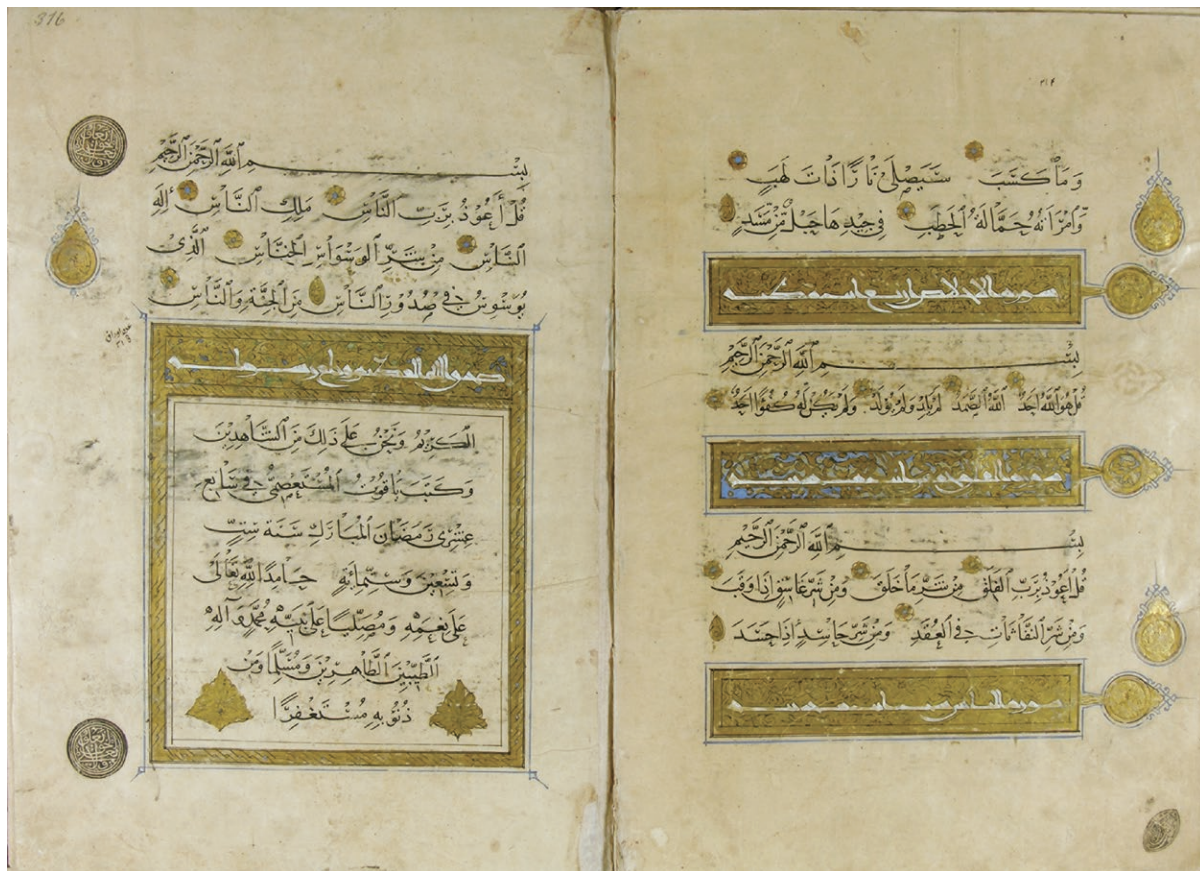 وما كسب سيصلى نارا ذات لهب
وامراته حمالة الحطب في جيدها حبل من مسد
سورة الاخلاص اربع ايات مكية
بسم الله الرحمن الرحيم
قل هو الله احد الله الصمد لم يلد ولم يولد ولم يكن له كفوا احد
سورة الفلق خمس ايات
بسم الله الرحمن الرحيم
قل اعوذ برب الفلق من شر ما خلق ومن شر غاسق اذا وقب
ومن شر النفاثات في العقد ومن شر حاسد اذا حسد
سورة الناس ايات
316
بسم الله الرحمن الرحيم
قل أعوذ برب الناس ملك الناس إله
الناس من شر الوسواس الخناس الذي
يوسوس في صدور الناس من الجنة والناس
صدق الله العظيم وبلغ رسوله
الكريم ونحن على ذلك من الشاهدين
وكتب ياقوت المستعصمي في سابع
عشرى رمضان المبارك سنة ست
وتسعين وستمائة حامدا لله تعالى
على نعمه ومصليا على نبيه محمد وآله
الطيبين الطاهرين ومسلما ومن
ذنوبه مستغفرا